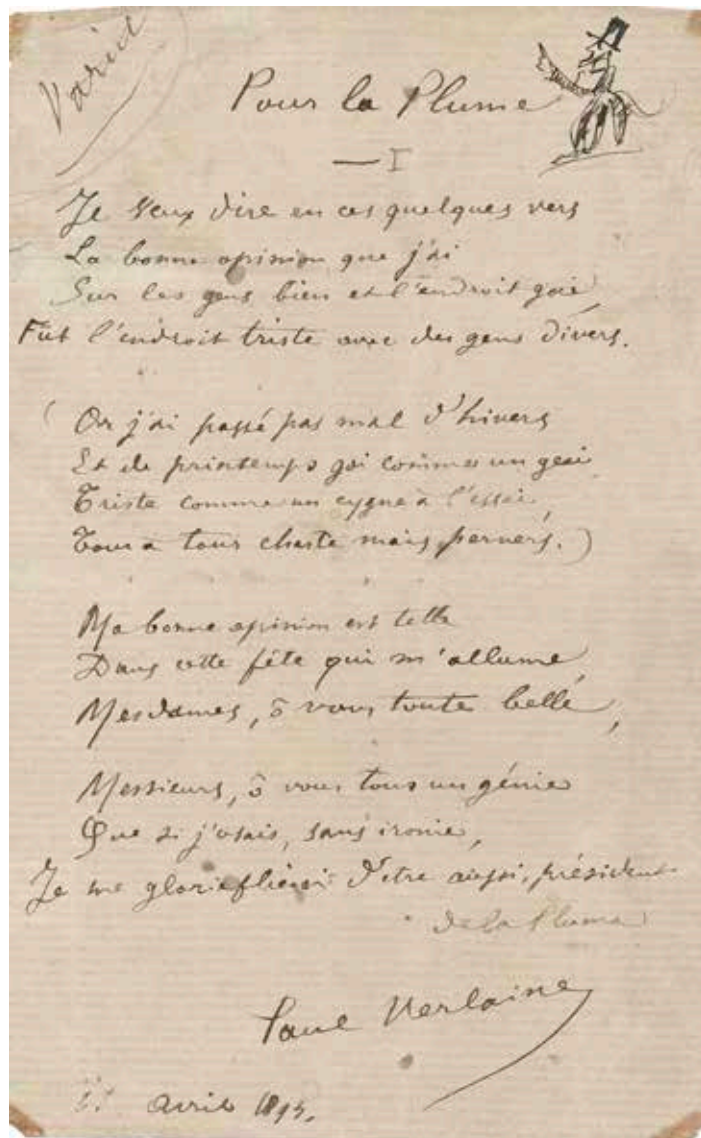 Varia
Pour la Plume
— I
Je veux dire en ces quelques vers
La bonne opinion que j'ai
Sur les gens bien et l'endroit gai,
Fût l'endroit triste avec des gens divers.
(Or j'ai passé pas mal d'hivers
Et de printemps gai comme un geai
Triste comme un cygne à l'essai,
Tour à tour chaste mais pervers.)
Ma bonne opinion est telle
Dans cette fête qui m'allume,
Mesdames, ô vous toute belle,
Messieurs, ô vous tous un génie
Que si j'osais, sans ironie,
Je me glorifierai d'être aussi, président
de la Plume
Paul Verlaine
avril